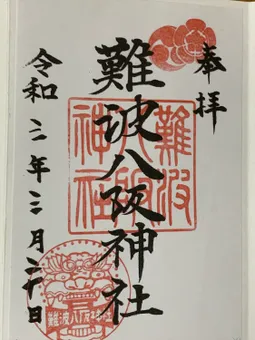 奉拝
難波八阪神社
令和二年三月日
難波
八阪
神社
難波八阪神社